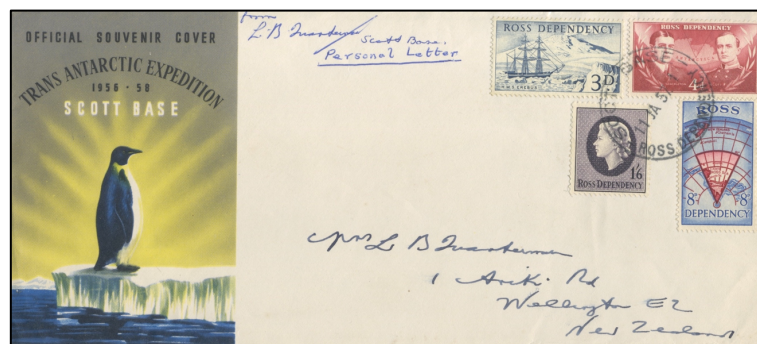 OFFICIAL SOUVENIR COVER
TRANS ANTARCTIC EXPEDITION
1956 · 58
SCOTT BASE
From
L. B. Quartermain
Scott Base.
Personal Letter
ROSS DEPENDENCY
3D
H.M.S. EREBUS
ROSS DEPENDENCY
4d
1/6
ROSS DEPENDENCY
ROSS
8d 8d
DEPENDENCY
11 JA 57
ROSS DEPENDENCY
Mrs L B Quartermain
1 Ariki Rd
Wellington E2
New Zealand